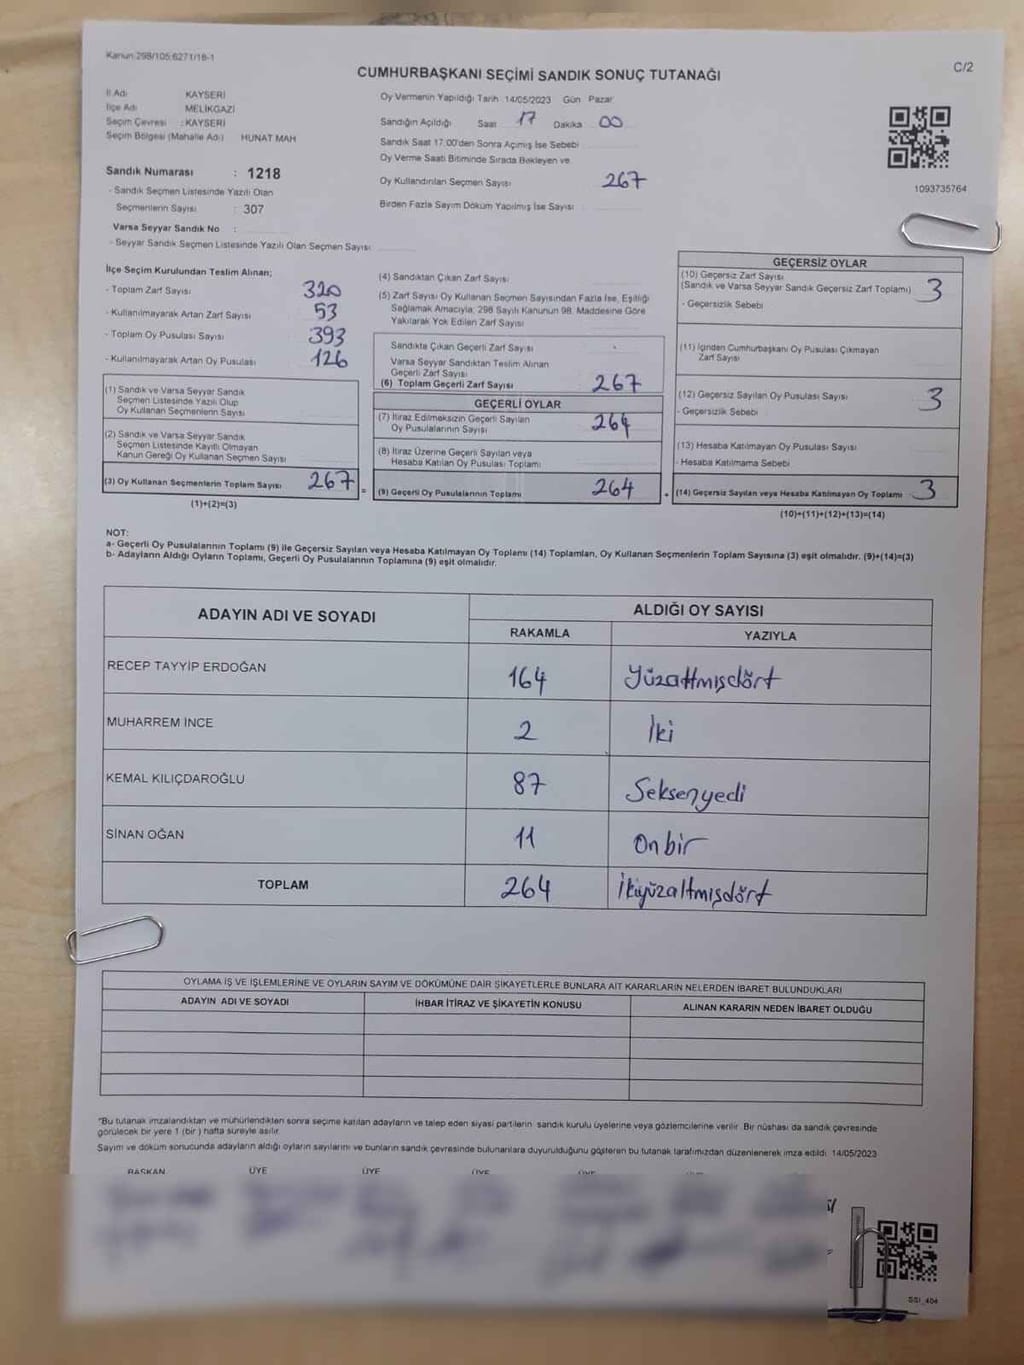 Kanun:298/105;6271/18-1
CUMHURBAŞKANI SEÇİMİ SANDIK SONUÇ TUTANAĞI
C/2
İl Adı KAYSERİ
İlçe Adı MELİKGAZİ
Seçim Çevresi : KAYSERİ
Seçim Bölgesi (Mahalle Adı) HUNAT MAH
Sandık Numarası : 1218
- Sandık Seçmen Listesinde Yazılı Olan
Seçmenlerin Sayısı : 307
Varsa Seyyar Sandık No :
- Seyyar Sandık Seçmen Listesinde Yazılı Olan Seçmen Sayısı
Oy Vermenin Yapıldığı Tarih 14/05/2023 Gün Pazar
Sandığın Açıldığı Saat 17 Dakika 00
Sandık Saat 17:00'den Sonra Açımış İse Sebebi
Oy Verme Saati Bitiminde Sırada Bekleyen ve
Oy Kullandırılan Seçmen Sayısı 267
Birden Fazla Sayım Döküm Yapılmış İse Sayısı
1093735764
İlçe Seçim Kurulundan Teslim Alınan;
- Toplam Zarf Sayısı 320
- Kullanılmayarak Artan Zarf Sayısı 53
- Toplam Oy Pusulası Sayısı 393
- Kullanılmayarak Artan Oy Pusulası 126
(1) Sandık ve Varsa Seyyar Sandık
Seçmen Listesinde Yazılı Olup
Oy Kullanan Seçmenlerin Sayısı
(2) Sandık ve Varsa Seyyar Sandık
Seçmen Listesinde Kayıtlı Olmayan
Kanun Gereği Oy Kullanan Seçmen Sayısı
(3) Oy Kullanan Seçmenlerin Toplam Sayısı 267
(1)+(2)=(3)
(4) Sandıktan Çıkan Zarf Sayısı
(5) Zarf Sayısı Oy Kullanan Seçmen Sayısından Fazla İse, Eşitliği
Sağlamak Amacıyla; 298 Sayılı Kanunun 98. Maddesine Göre
Yakılarak Yok Edilen Zarf Sayısı
Sandıkta Çıkan Geçerli Zarf Sayısı
Varsa Seyyar Sandıktan Teslim Alınan
Geçerli Zarf Sayısı
(6) Toplam Geçerli Zarf Sayısı 267
GEÇERLİ OYLAR
(7) İtiraz Edilmeksizin Geçerli Sayılan
Oy Pusulalarının Sayısı 264
(8) İtiraz Üzerine Geçerli Sayılan veya
Hesaba Katılan Oy Pusulası Toplamı
(9) Geçerli Oy Pusulalarının Toplamı 264
GEÇERSİZ OYLAR
(10) Geçersiz Zarf Sayısı
(Sandık ve Varsa Seyyar Sandık Geçersiz Zarf Toplamı) 3
- Geçersizlik Sebebi
(11) İçinden Cumhurbaşkanı Oy Pusulası Çıkmayan
Zarf Sayısı
(12) Geçersiz Sayılan Oy Pusulası Sayısı 3
- Geçersizlik Sebebi
(13) Hesaba Katılmayan Oy Pusulası Sayısı
- Hesaba Katılmama Sebebi
(14) Geçersiz Sayılan veya Hesaba Katılmayan Oy Toplamı 3
(10)+(11)+(12)+(13)=(14)
NOT:
a- Geçerli Oy Pusulalarının Toplamı (9) ile Geçersiz Sayılan veya Hesaba Katılmayan Oy Toplamı (14) Toplamları, Oy Kullanan Seçmenlerin Toplam Sayısına (3) eşit olmalıdır. (9)+(14)=(3)
b- Adayların Aldığı Oyların Toplamı, Geçerli Oy Pusulalarının Toplamına (9) eşit olmalıdır.
ADAYIN ADI VE SOYADI ALDIĞI OY SAYISI
RAKAMLA YAZIYLA
RECEP TAYYİP ERDOĞAN 164 Yüzaltmışdört
MUHARREM İNCE 2 İki
KEMAL KILIÇDAROĞLU 87 Seksenyedi
SİNAN OĞAN 11 Onbir
TOPLAM 264 İkiyüzaltmışdört
OYLAMA İŞ VE İŞLEMLERİNE VE OYLARIN SAYIM VE DÖKÜMÜNE DAİR ŞİKAYETLERLE BUNLARA AİT KARARLARIN NELERDEN İBARET BULUNDUKLARI
ADAYIN ADI VE SOYADI İHBAR İTİRAZ VE ŞİKAYETİN KONUSU ALINAN KARARIN NEDEN İBARET OLDUĞU
"Bu tutanak imzalandıktan ve mühürlendikten sonra seçime katılan adayların ve talep eden siyasi partilerin sandık kurulu üyelerine veya gözlemcilerine verilir. Bir nüshası da sandık çevresinde
görülecek bir yere 1 (bir) hafta süreyle asılır.
Sayım ve döküm sonucunda adayların aldığı oyların sayılarını ve bunların sandık çevresinde bulunanlara duyurulduğunu gösteren bu tutanak tarafımızdan düzenlenerek imza edildi. 14/05/2023
BAŞKAN ÜYE ÜYE ÜYE ÜYE